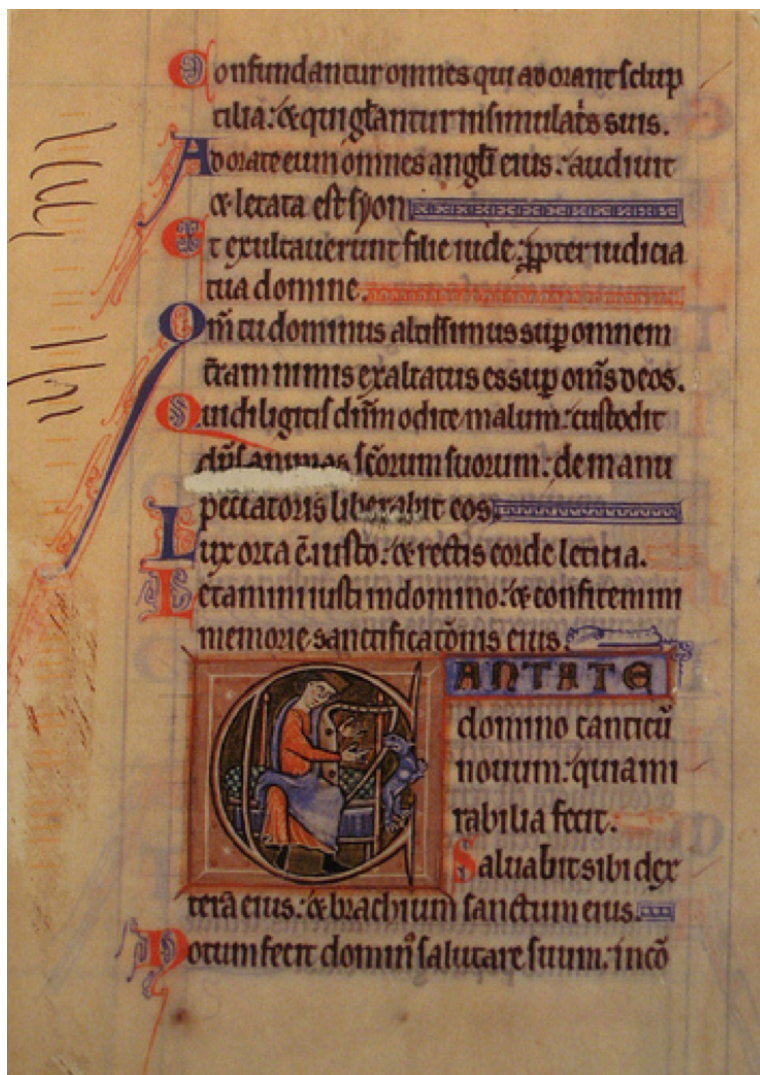 Confundantur omnes qui adorant sculp
tilia: & qui gl̃antur in simulac̃s suis.
Adorate eum omnes angl̃i eius: audiuit
& letata est syon
Et exultauerunt filie iude: ꝓpter iudicia
tua domine.
Qm̃ tu dominus altissimus suꝑ omnem
t̃ram nimis exaltatus es suꝑ om̃s deos.
Qui diligitis dñm odite malum: custodit
dñs animas sc̃orum suorum: de manu
peccatoris liberabit eos.
Lux orta ẽ iusto: & rectis corde leticia.
Letamini iusti in domino: & confitemini
memorie sanctificat̃onis eius.
CANTATE
domino canticũ
nouum: quia mi
rabilia fecit.
Saluabit sibi dex
terã eius: & brachium sanctum eius.
Notum fecit dominꝰ salutare suum: in cõ